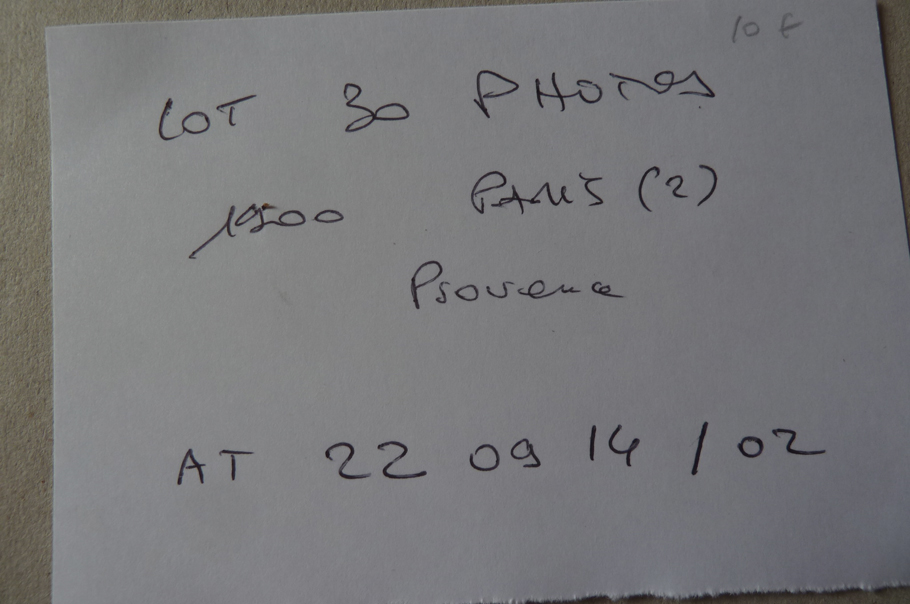 10 €
LOT 30 PHOTOS
1900 PARIS (2)
Provence
AT 22 09 14 / 02